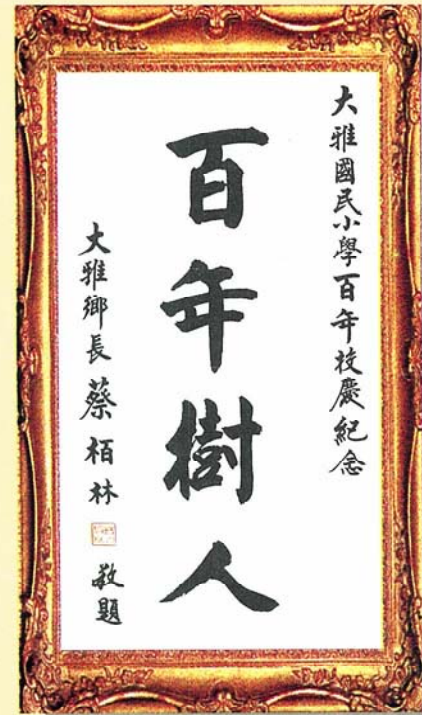 大雅國民小學百年校慶紀念
百年樹人
大雅鄉長蔡栢林敬題